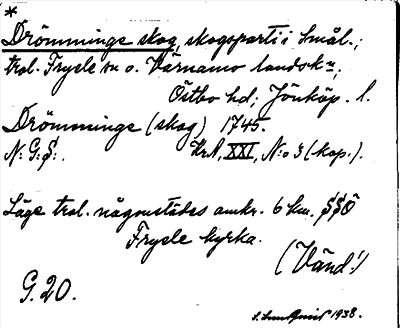 *
Drömminge skog, skogsparti i Smål.;
trol. Fryele sn o. Värnamo landsk:n;
Östbo hd; Jönköp. l.
Drömminge (skog) 1745.
N: G: §:. KrA, XXI, N:o 3 (kop.).
Läge trol. någonstädes omkr. 6 km. §§Ö
Fryele kyrka.
(Vänd!)
G. 20.
1938.